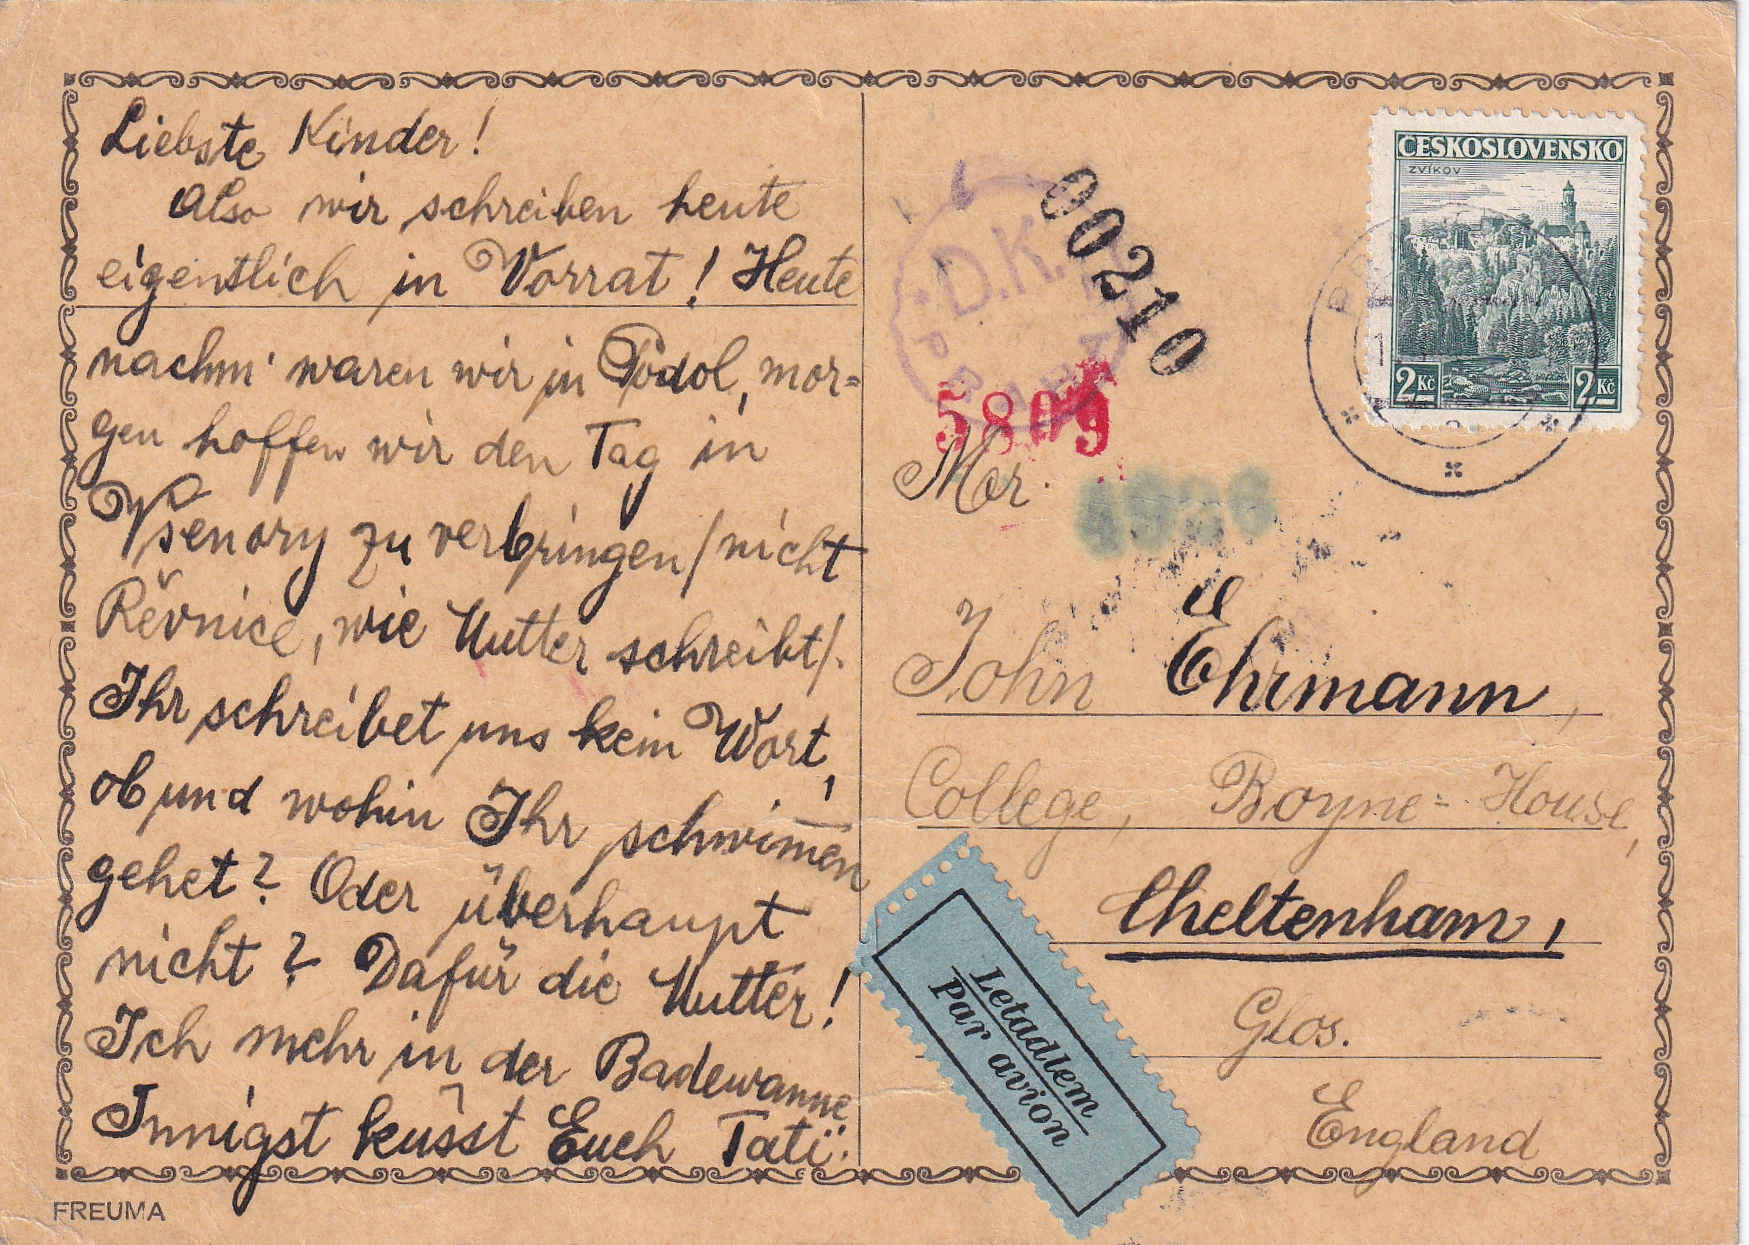 Liebste Kinder!
Also wir schreiben heute
eigentlich in Vorrat! Heute
nachm. waren wir in Podol, mor=
gen hoffen wir den Tag in
Vsenory zu verbringen/nicht
Řevnice, wie Mutter schreibt/.
Ihr schreibet uns kein Wort,
ob und wohin Ihr schwimmen
gehet? Oder überhaupt
nicht? Dafür die Mutter!
Ich mehr in der Badewanne
Innigst küsst Euch Tati
FREUMA
ČESKOSLOVENSKO
ZVÍKOV
2 Kč 2 Kč
D.K.
00210
5809
Mr.
John Ehrmann,
College, Boyne-House,
Cheltenham,
Glos.
England
Letadlem
Par avion